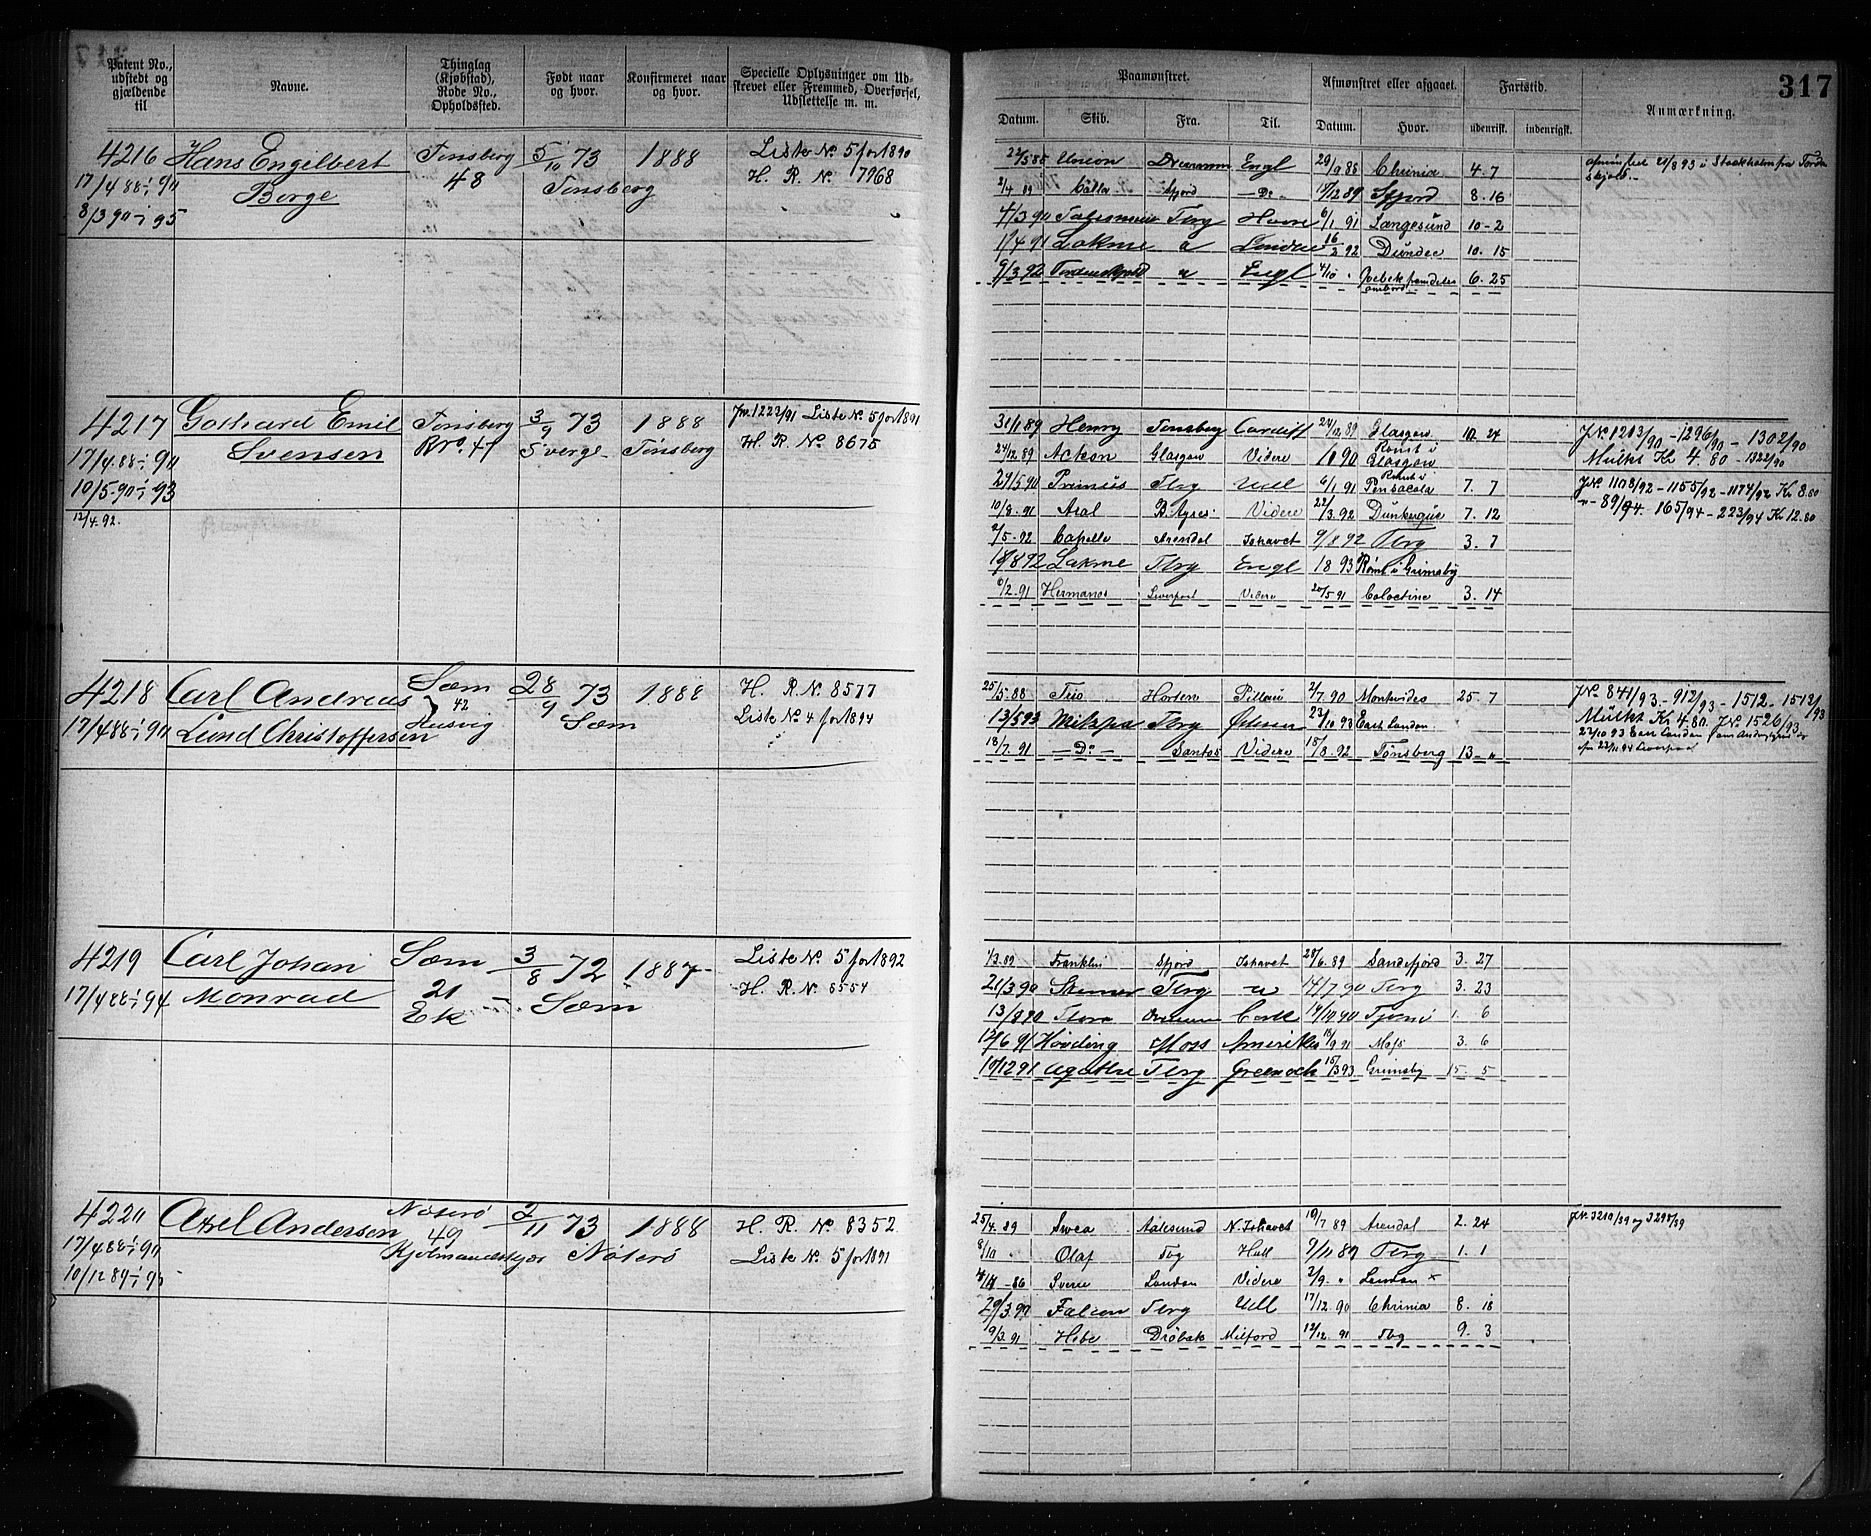 317
Patent No., udstedt og gjældende til
Navne.
Thinglag (Kjøbstad), Rode No., Opholdssted.
Født naar og hvor.
Konfirmeret naar og hvor.
Specielle Oplysninger om Udstrevet eller Fremmed, Overførsel, Udslettelse m. m.
Paamønstret.
Afmønstret eller afgaaet.
Fartstid.
Anmærkning.
Datum. Skib. Fra. Til. Datum. Hvor. udenrigsk. indenrigsk.
4216 Hans Engilbert Tønsberg 5/10 73 1888 Liste No 5 for 1890
17/4 88 - 1/1 90 Borge 48 Tønsberg H. R. No 7968
8/3 90 - 1/1 95
Union Engl 29/9 88 4. 7
2/4 89 Sfjord - Do - 19/12 89 Sfjord 8. 16
4/3 90 Tbrg Havre 6/1 91 Langesund 10-2
Lakme 16/2 92 Dundee 10. 15
9/3 92 Tordenskjold Engl 4/10 6. 25
4217 Gothard Emil Tønsberg 3/9 73 1888 Jn. 1223/91 Liste No 5 for 1891
17/4 88 - 1/1 90 Svensen Sverge Tønsberg H. R. No 8675
10/5 90 - 1/1 93
12/4. 92.
31/1 89 Henry Tønsberg Cardiff 24/12 89 Glasgow 10. 24
24/12 89 Acton Glasgow Videre 1/0 90 Rømt i Glasgow
27/5 90 Primus Tbrg 6/1 91 Rømt i Pensacola 7. 7
10/3. 91 Aral B. Ayres Videre 22/3. 92 Dunkerque 7. 12
2/5-92 Capella Arendal Ishavet 9/8 92 Tbrg 3. 7
Lakme Tbrg Engl 18 93 Rømt i Grimsby
6/2. 91 Hermanos Liverpool Videre 20/5 91 3. 14
JNo 1213/90 - 1296/90 - 1302/90
Mulkt Kr 4. 80 - 1322/90
JNo 1108/92 - 1155/92 - 1174/92 Kr 8.80
- 89/94. 165/94 - 223/94 Kr 12.80
4218 Carl Andreas Sæm 28/9 73 1888 H. R. No 8577
17/4 88 - 1/1 90 Lund Christoffersen 42 Husvig Sæm Liste No 4 for 1894
25/5. 88 Trio Horten Pillau 2/7. 90 Montevideo 25. 7
13/5 93 Mitzpa Tbrg 23/10 93 East London
18/7. 91 - Do - Santos Videre 18/8. 92 Tønsberg 13 - "
JNo 841/93 - 912/93 - 1512 - 1513/93
Mulkt Kr 4.80. JNo 1526/93
4219 Carl Johan Sæm 3/8 72 1887 Liste No. 5 for 1892
17/4 88 - 1/1 94 Monrad 21 Ek Sæm H. R. No. 8554
1/3. 89 Franklin Sfjord Ishavet 28/6. 89 Sandefjord 3. 27
21/3 90 Skimer Tbrg 14/7. 90 Tbrg 3. 23
13/8 90 Flora Cork 14/10 90 Tjømø 1. 6
Høvding Moss Amerika Moss 3. 6
Agathe Tbrg Greenock 15/3 93 Grimsby 15. 5
4220 Axel Andersen Nøterø 2/11 73 1888 H. R. No 8352.
17/4 88 - 1/1 90 49 Nøterø Liste No. 5 for 1891
10/12 89 - 1/1 95
25/4. 89 Svea Aalesund N. Ishavet 10/7 89 Arendal 2. 24
8/10 Olaf Tbg Hull 9/11 89 Tbrg 1. 1
Sverre London Videre 2/9. " London x
29/3. 90 Falcon Tbrg 17/12. 90 Chrinia 8. 18
9/3. 91 Hebe Drøbak Milford 12/12. 91 Tbg 9. 3
JNo. 3210/89 og 3295/89